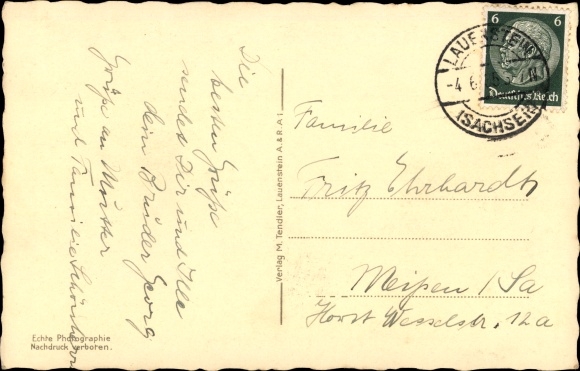 Die
besten Grüße
sendet Dir und Ilse
dein Bruder Georg
Grüße an Mutter
und Familie
Echte Photographie
Nachdruck verboten.
Verlag M. Tendler, Lauenstein A. & R. A.
6 6
Deutsches Reich
LAUENSTEIN
-4.6.
(SACHSEN)
Familie
Fritz Ehrhardt
Meißen / Sa
Horst Wesselstr. 12a